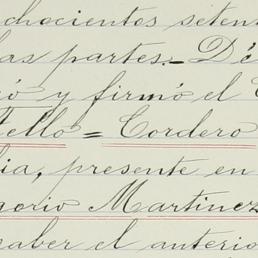 chocientos seten
las partes.= Dé
ó y firmó el
Tello = Cordero
ia, presente en
gorio Martinez
saber el anterio